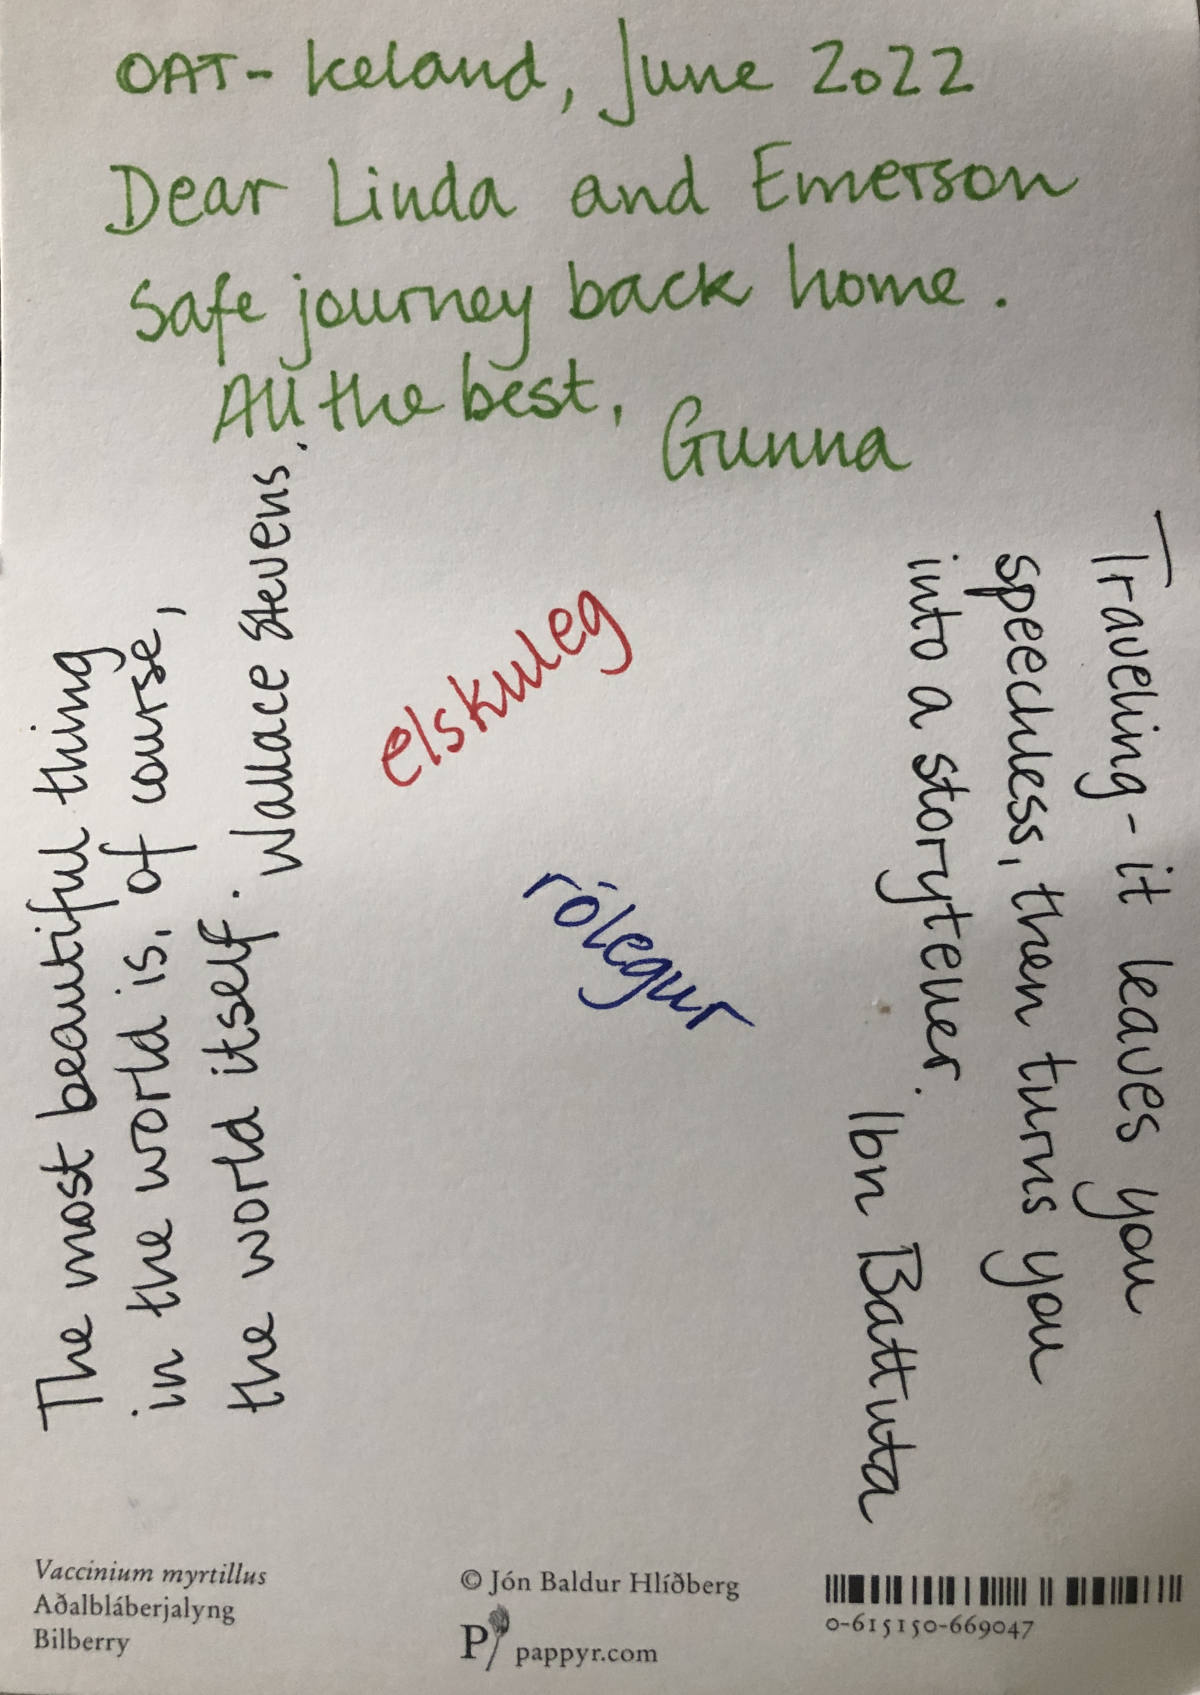 OAT - Iceland, June 2022
Dear Linda and Emerson
Safe journey back home.
All the best,
Gunna
The most beautiful thing
in the world is, of course,
the world itself. Wallace Stevens.
elskuleg
rólegur
Traveling - it leaves you
speechless, then turns you
into a storyteller.
Ibn Battuta
Vaccinium myrtillus
Aðalbláberjalyng
Bilberry
© Jón Baldur Hlíðberg
P pappyr.com
0-615150-669047